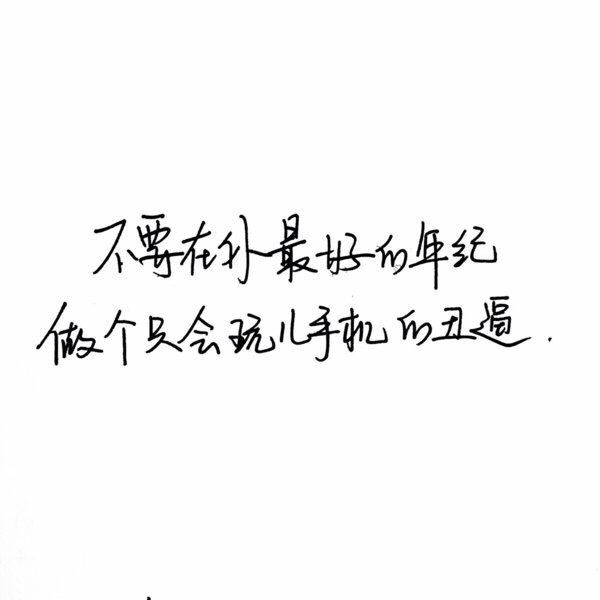 不要在你最好的年纪
做个只会玩儿手机的丑逼.